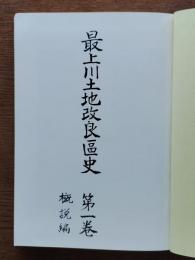 最上川土地改良區史
第一巻
概説編